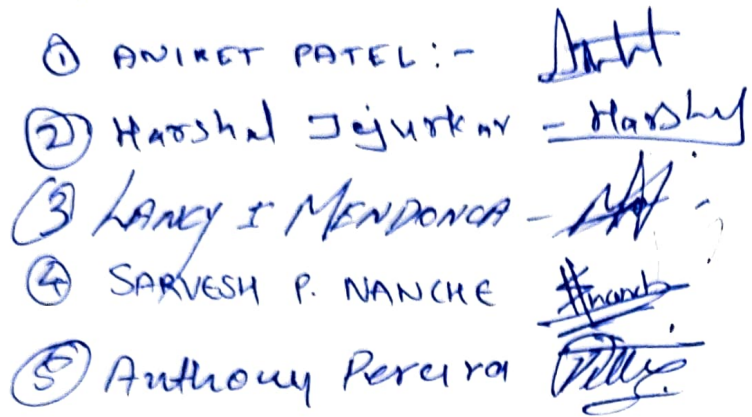 ① ANIKET PATEL :-
② Harshal Jejurkar - Harshal
③ LANCY I MENDONCA -
④ SARVESH P. NANCHE
⑤ Anthony Pereira